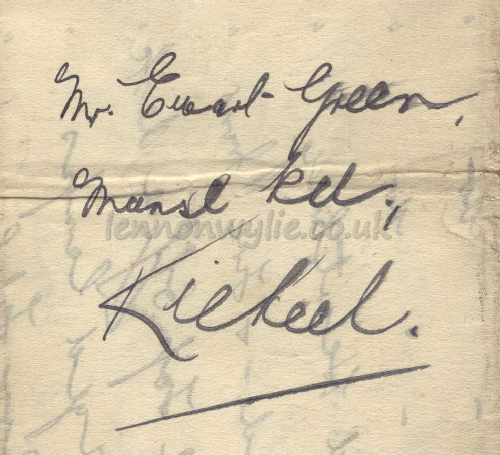 Mr. Ewart Green,
Manse Rd.,
lennonwylie.co.uk
Kilkeel.